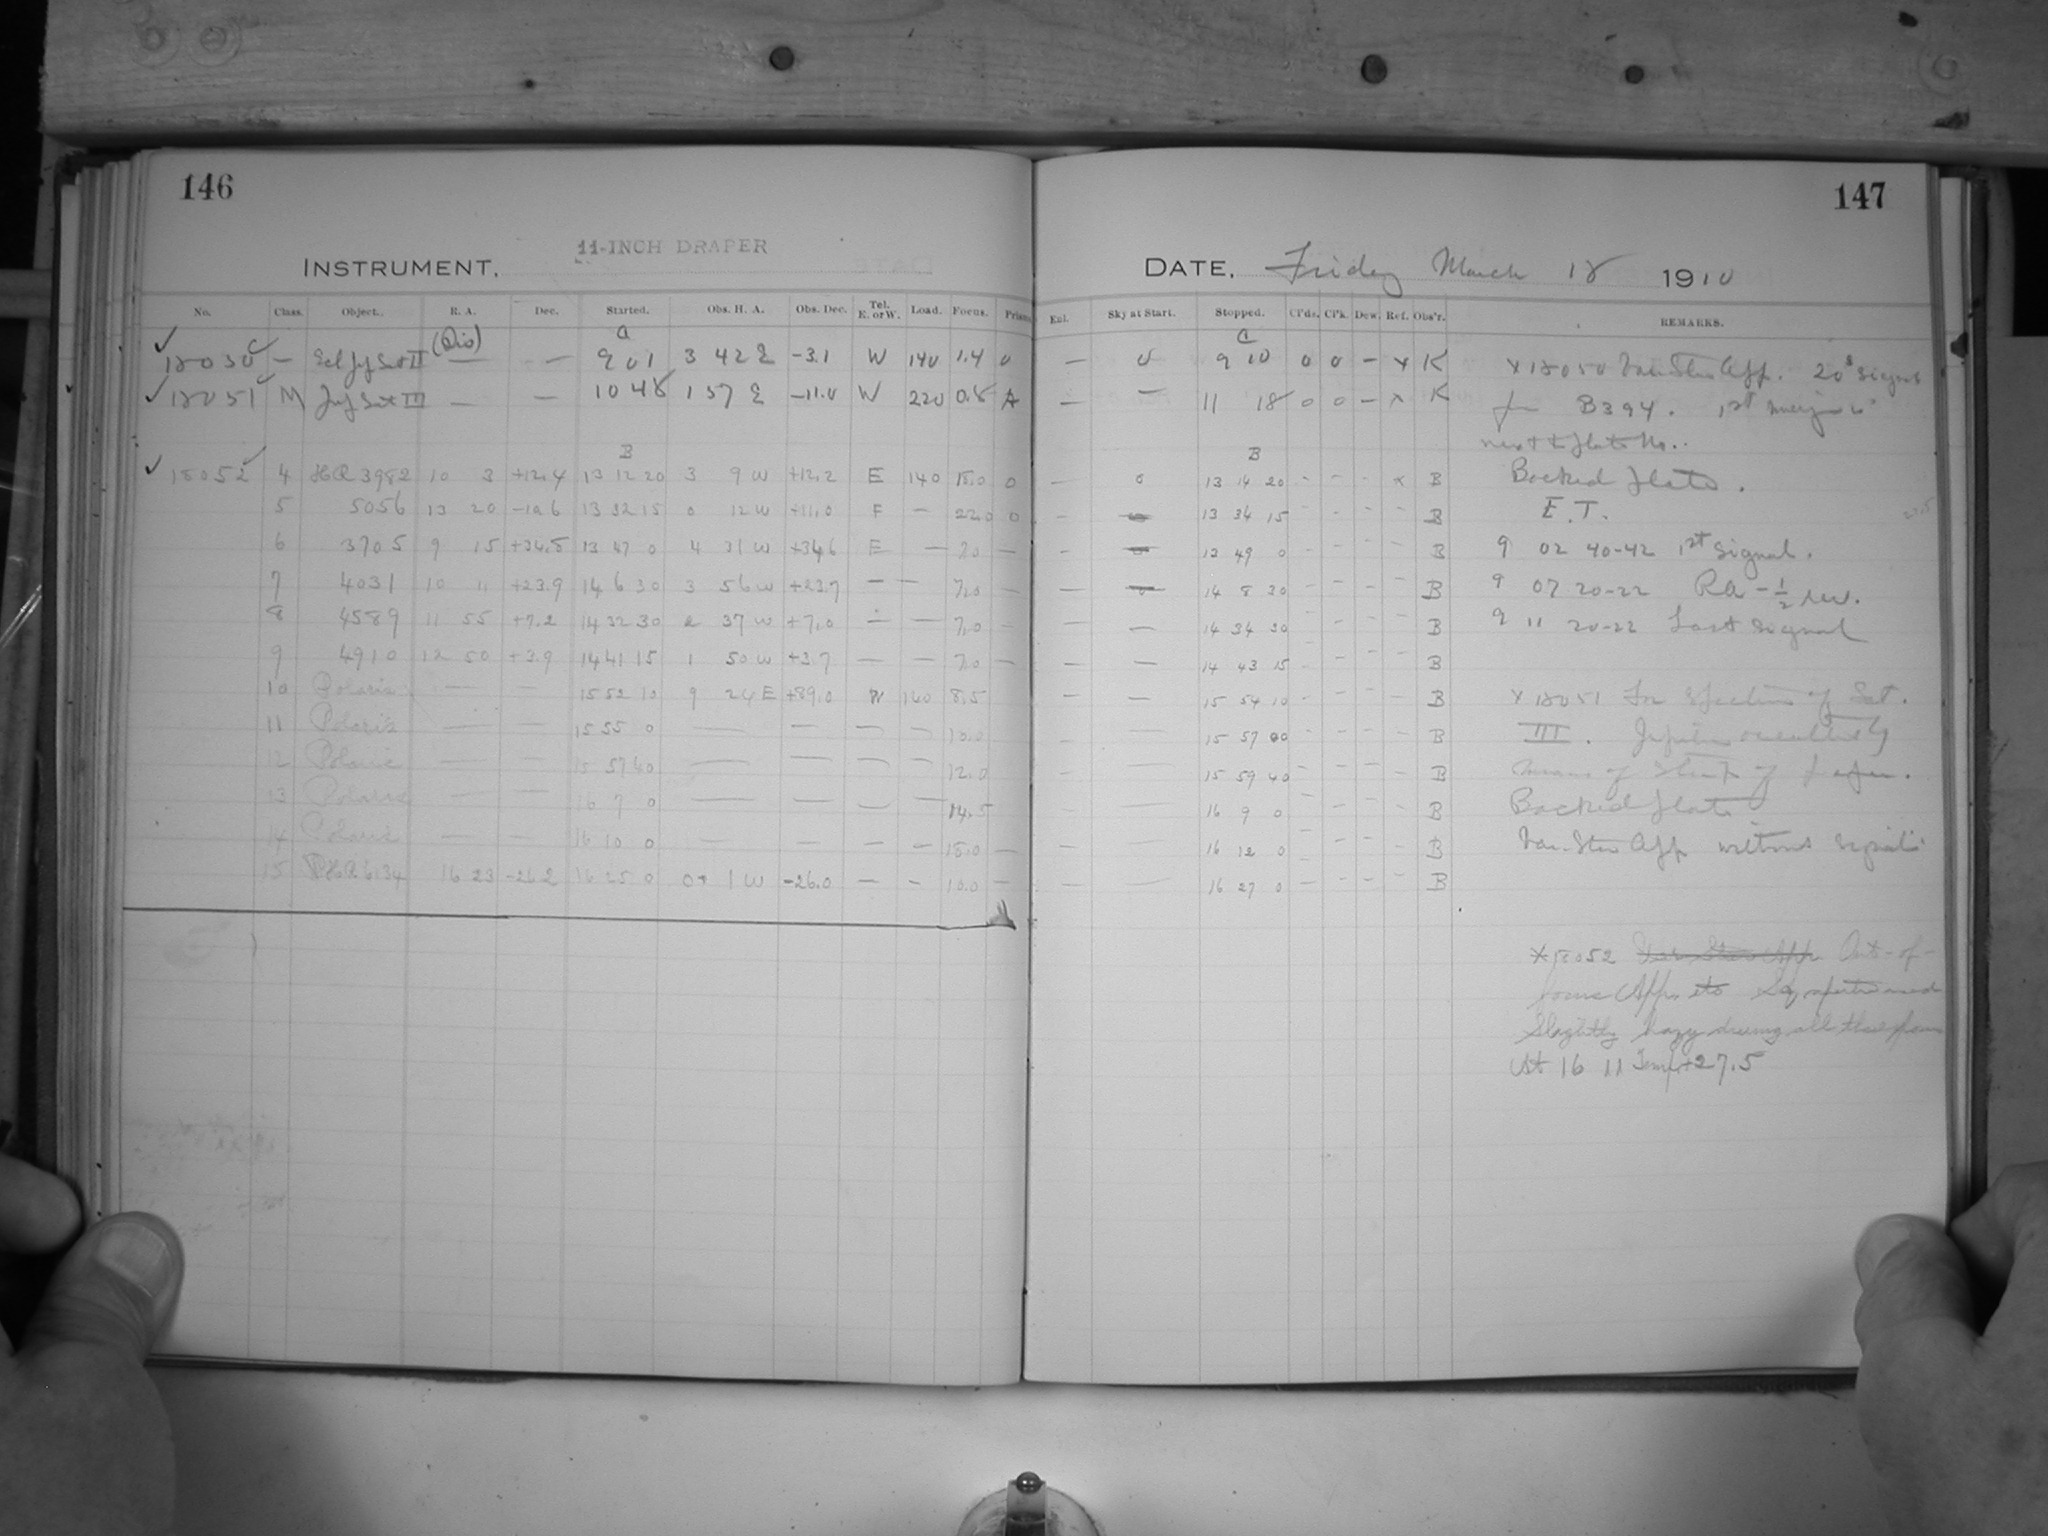 146
11-INCH DRAPER
INSTRUMENT,
No. Class. Object. R. A. Dec. Started. Obs. H. A. Obs. Dec. Tel. E. or W. Load. Focus. Prism
(Dis) a
18050 — Ecl Jup Sat II — — 9 01 3 42 E -3.1 W 140 1.4 0
18051 M Jup Sat III — — 10 48 1 57 E -11.0 W 220 0.8 A
B
18052 4 HR 3982 10 3 +12.4 13 12 20 3 9 W +12.2 E 140 15.0 0
5 5056 13 20 -10.6 13 32 15 0 12 W +11.0 E — 22.0 0
6 3705 9 15 +34.5 13 47 0 4 31 W +34.6 E — 7.0 —
7 4031 10 11 +23.9 14 6 30 3 56 W +23.7 — — 7.0 —
8 4589 11 55 +7.2 14 32 30 2 37 W +7.0 — — 7.0 —
9 4910 12 50 +3.9 14 41 15 1 50 W +3.7 — — 7.0 —
10 Polaris — — 15 52 10 9 24 E +89.0 W 140 8.5
11 Polaris — — 15 55 0 — — — — 10.0
12 Polaris — — 15 57 40 — — — — 12.0
13 Polaris — — 16 7 0 — — — — 14.5
14 Polaris — — 16 10 0 — — — — 15.0 —
15 HR 6134 16 23 -26.2 16 25 0 0 1 W -26.0 — — 10.0 —
147
DATE, Friday March 18 1910
Enl. Sky at Start. Stopped. Cl'ds. Cl'k. Dew. Ref. Obs'r. REMARKS.
a
— 0 9 10 0 0 — x K x 18050 Var. Star App. 20s signals
— — 11 18 0 0 — x K for B394. 1st
next to plate No..
B
— 0 13 14 20 - - - x B Backed plate.
— 13 34 15 - - - - B E.T.
— 13 49 0 - - - - B 9 02 40-42 1st signal.
— 14 8 30 - - - - B 9 07 20-22 Ra - 1/2 rev.
— — 14 34 30 - - - - B 9 11 20-22 Last signal
— — 14 43 15 - - - - B
— — 15 54 10 - - - - B x 18051 For of Sat.
— — 15 57 00 - - - - B III. Jupiter occulted by
— — 15 59 40 - - - - B means of strip of paper.
— — 16 9 0 - - - - B Backed plate
— — 16 12 0 - - - - B Var. Star App without signals
— — 16 27 0 - - - - B
*18052 Var Star App. Out-of-
focus App. used
Slightly hazy during all these
At 16 11 Temp +27.5